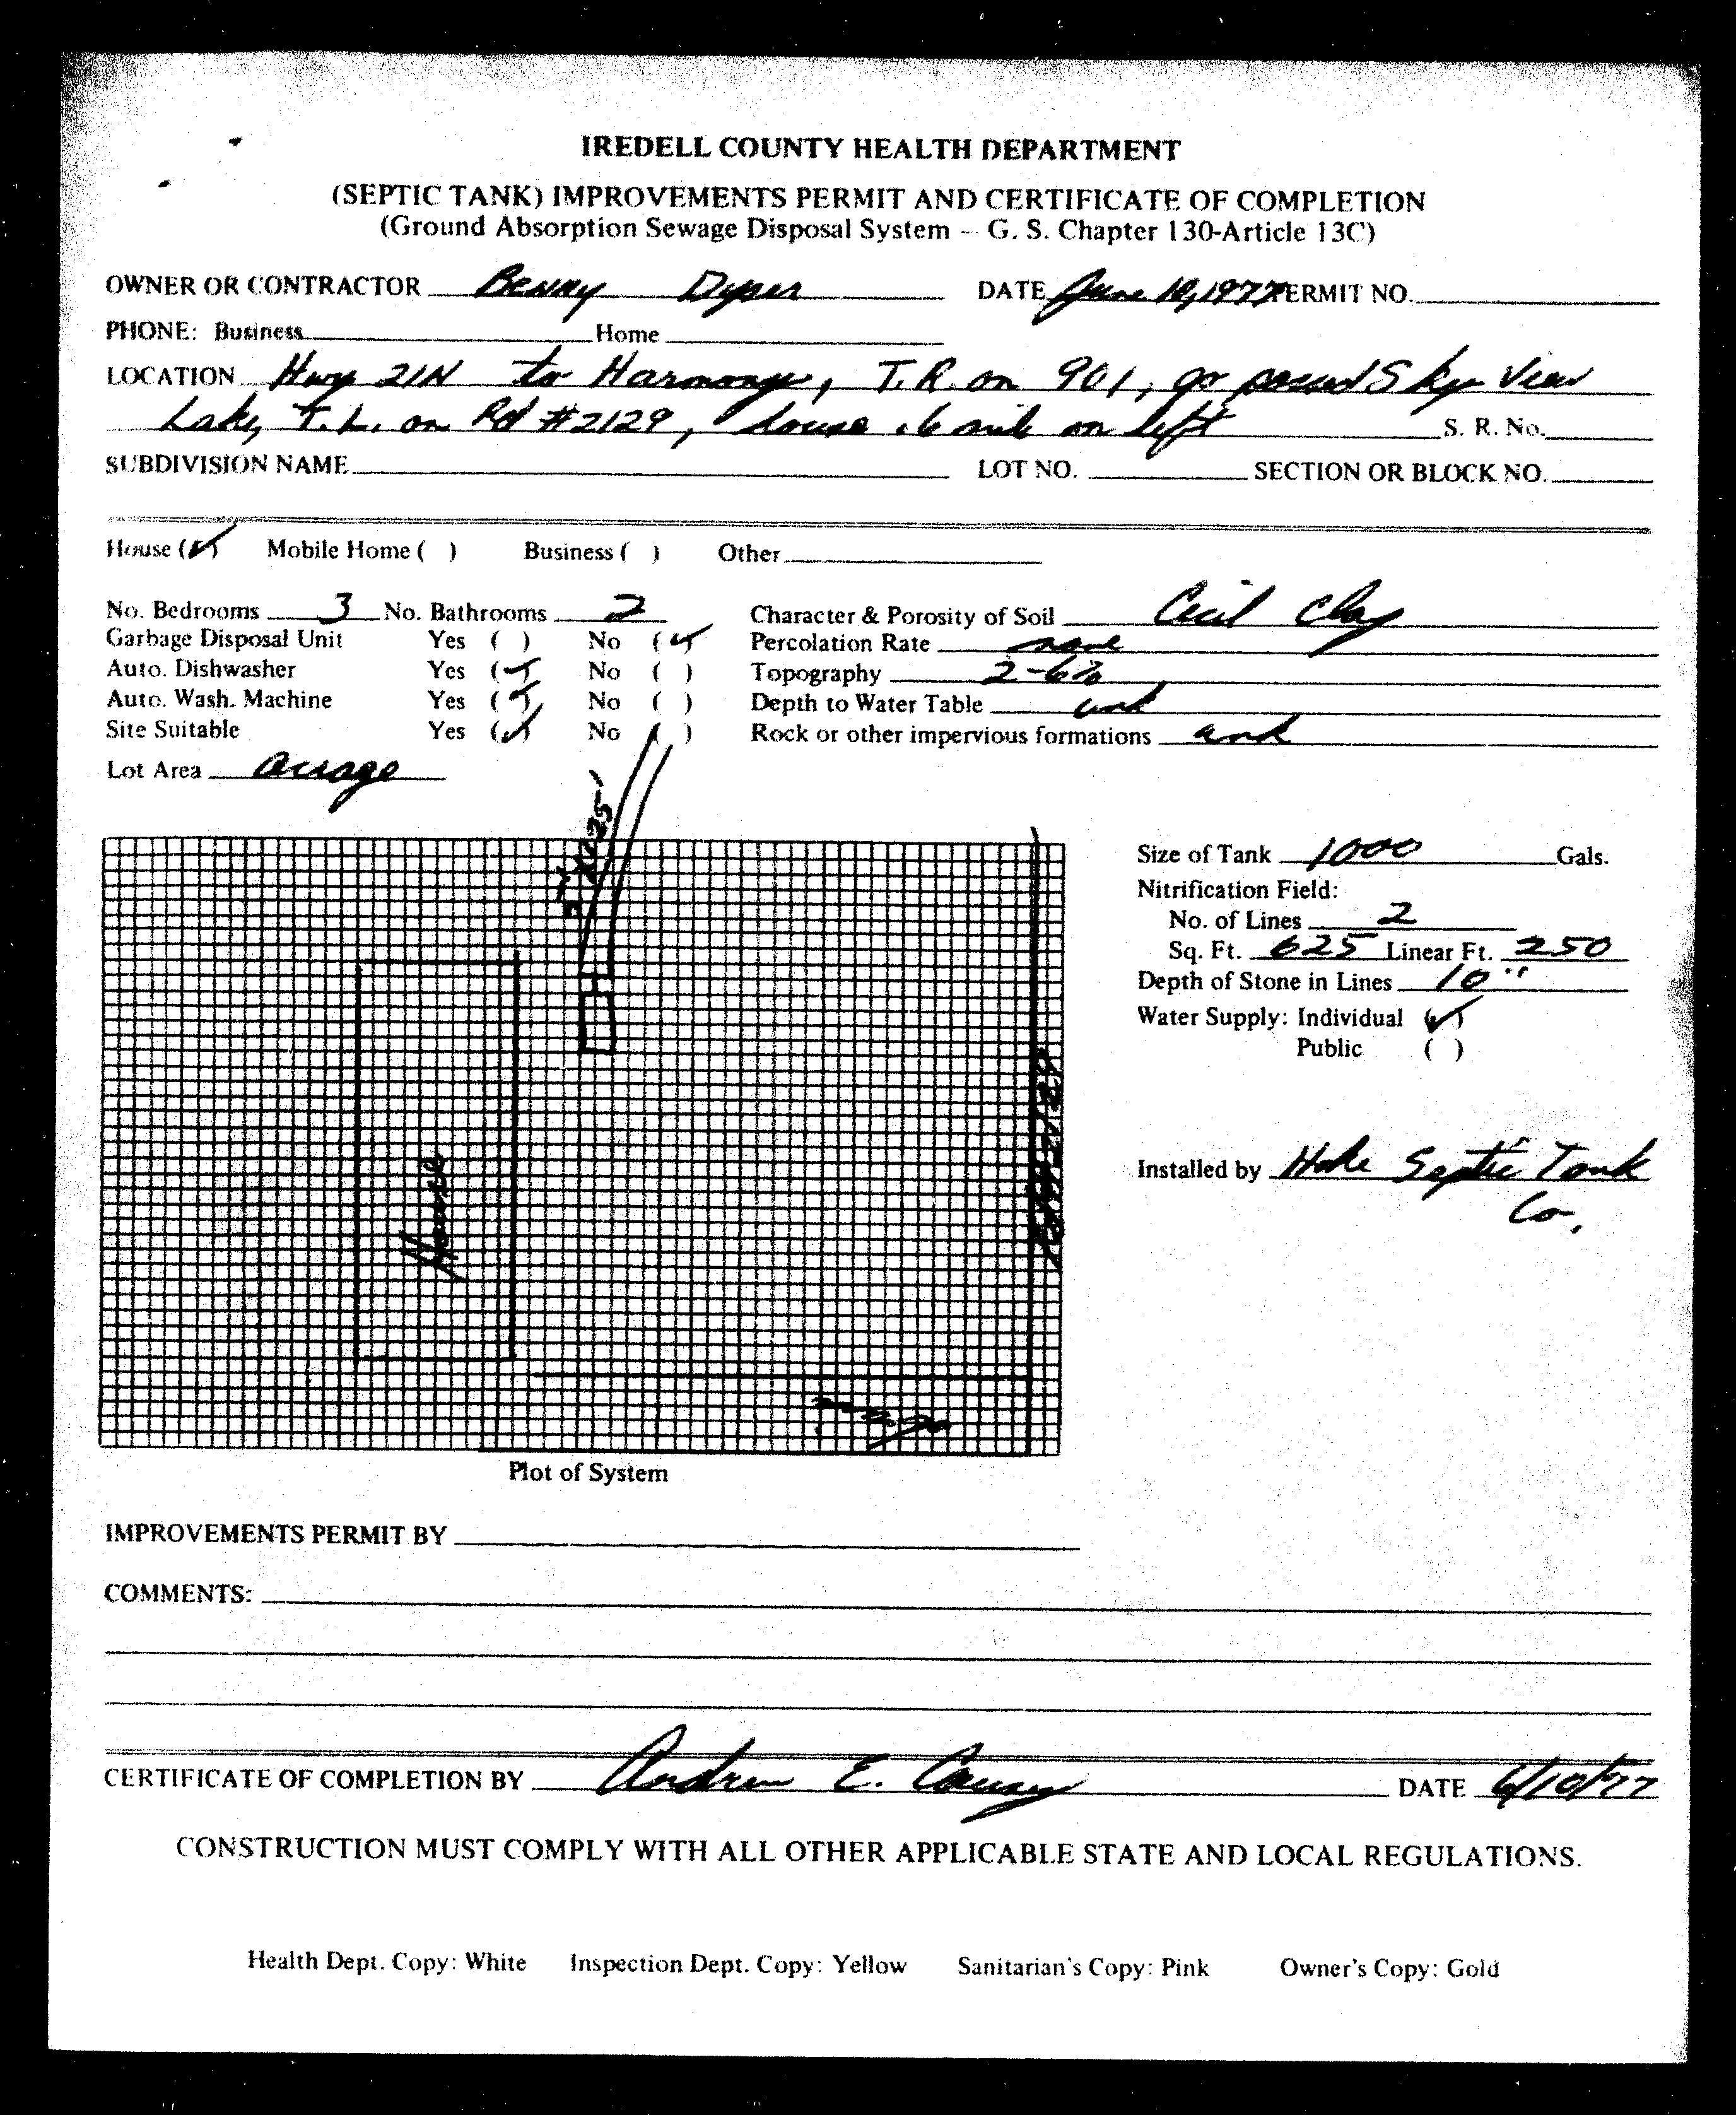 IREDELL COUNTY HEALTH DEPARTMENT
(SEPTIC TANK) IMPROVEMENTS PERMIT AND CERTIFICATE OF COMPLETION
(Ground Absorption Sewage Disposal System – G. S. Chapter 130-Article 13C)
OWNER OR CONTRACTOR Benny DATE June 10, 1977 PERMIT NO.
PHONE: Business Home
LOCATION Hwy 21N to Harmony, T.R. on 901, go passed Sky View
Lake, T.L. on Rd #2129, house .6 mile on left S. R. No.
SUBDIVISION NAME LOT NO. SECTION OR BLOCK NO.
House (✓) Mobile Home ( ) Business ( ) Other
No. Bedrooms 3 No. Bathrooms 2 Character & Porosity of Soil Cecil Clay
Garbage Disposal Unit Yes ( ) No (✓) Percolation Rate none
Auto. Dishwasher Yes (✓) No ( ) Topography 2-6%
Auto. Wash. Machine Yes (✓) No ( ) Depth to Water Table unk
Site Suitable Yes (✓) No ( ) Rock or other impervious formations unk
Lot Area acrage
Size of Tank 1000 Gals.
Nitrification Field:
No. of Lines 2
Sq. Ft. 625 Linear Ft. 250
Depth of Stone in Lines 10"
Water Supply: Individual (✓)
Public ( )
Installed by Septic Tank
Co.
House
Plot of System
IMPROVEMENTS PERMIT BY
COMMENTS:
CERTIFICATE OF COMPLETION BY Andrew E. DATE 6/10/77
CONSTRUCTION MUST COMPLY WITH ALL OTHER APPLICABLE STATE AND LOCAL REGULATIONS.
Health Dept. Copy: White Inspection Dept. Copy: Yellow Sanitarian's Copy: Pink Owner's Copy: Gold